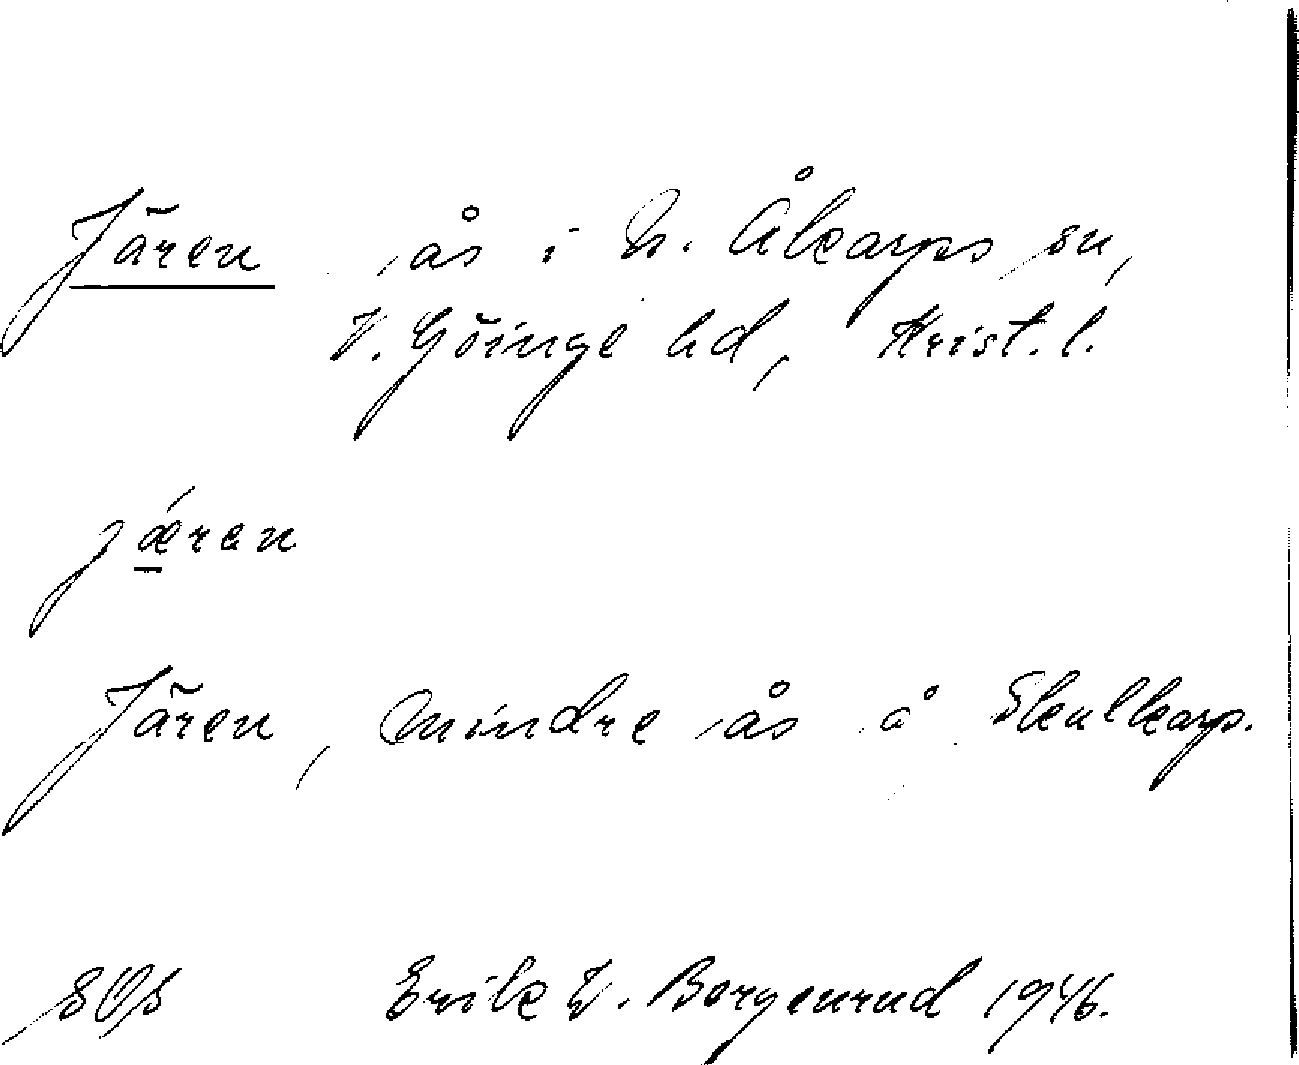 Jären ås i N. Åkarps sn,
V. Göinge hd, Krist. l.
jǽren
Jären, mindre ås å Skulkarp.
Erik W. Borgenrud 1946.